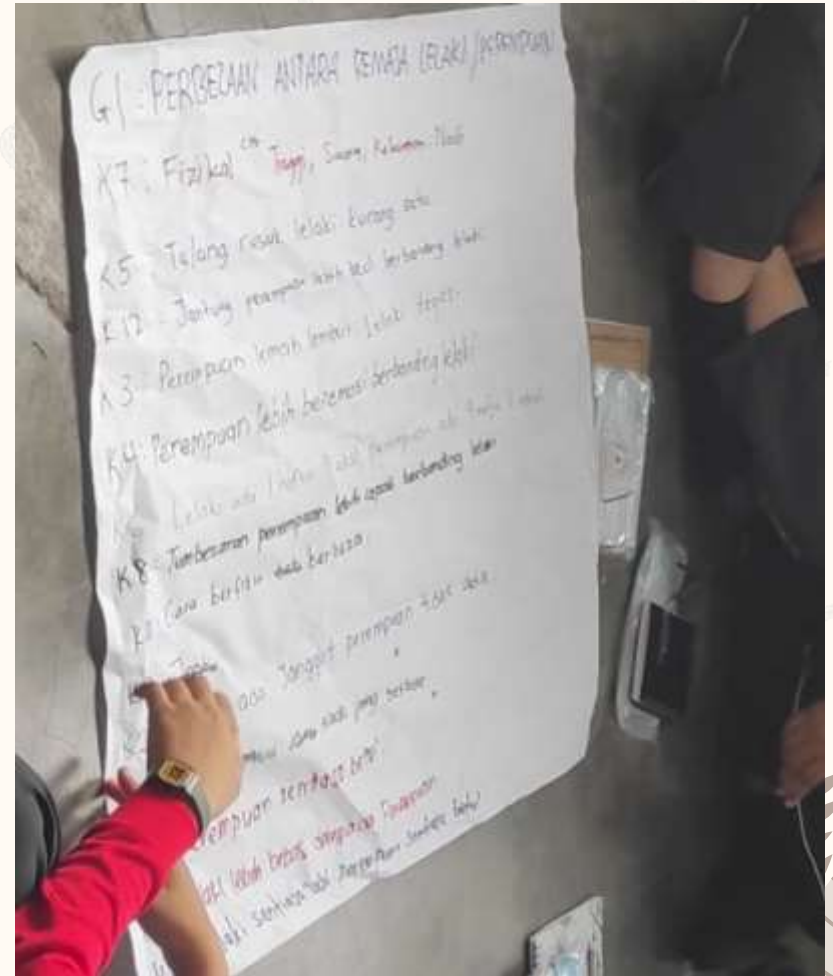 G1 : PERBEZAAN ANTARA REMAJA LELAKI / PEREMPUAN
K7 : Fizikal Tinggi, Suara,
K5 : Tulang rusuk lelaki kurang satu
K12 : Jantung perempuan lebih kecil berbanding lelaki
K3 : Perempuan lemah lembut lelaki
K4 : Perempuan lebih beremosi berbanding lelaki
Lelaki ada 1 nafsu 9 akal perempuan ada 9 nafsu 1 akal
K8 : Tumbesaran perempuan lebih cepat berbanding lelaki
Cara berfikir berbeza
ada janggut perempuan tidak ada
yang berbeza
perempuan sentiasa betul
lebih bebas daripada Perempuan
sentiasa perempuan sentiasa betul